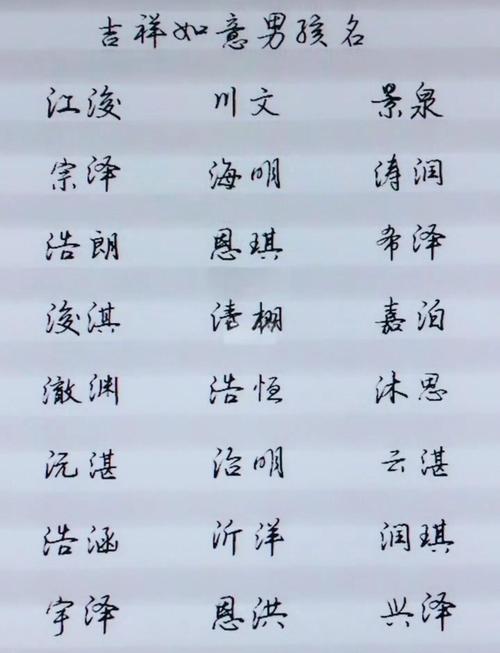 吉祥如意男孩名
江浚 川文 景泉
宗泽 海明 涛润
浩朗 恩琪 希泽
浚淇 清栩 嘉泊
澈渊 浩恒 沐恩
沅湛 治明 云湛
浩涵 沂洋 润琪
宇泽 恩洪 兴泽